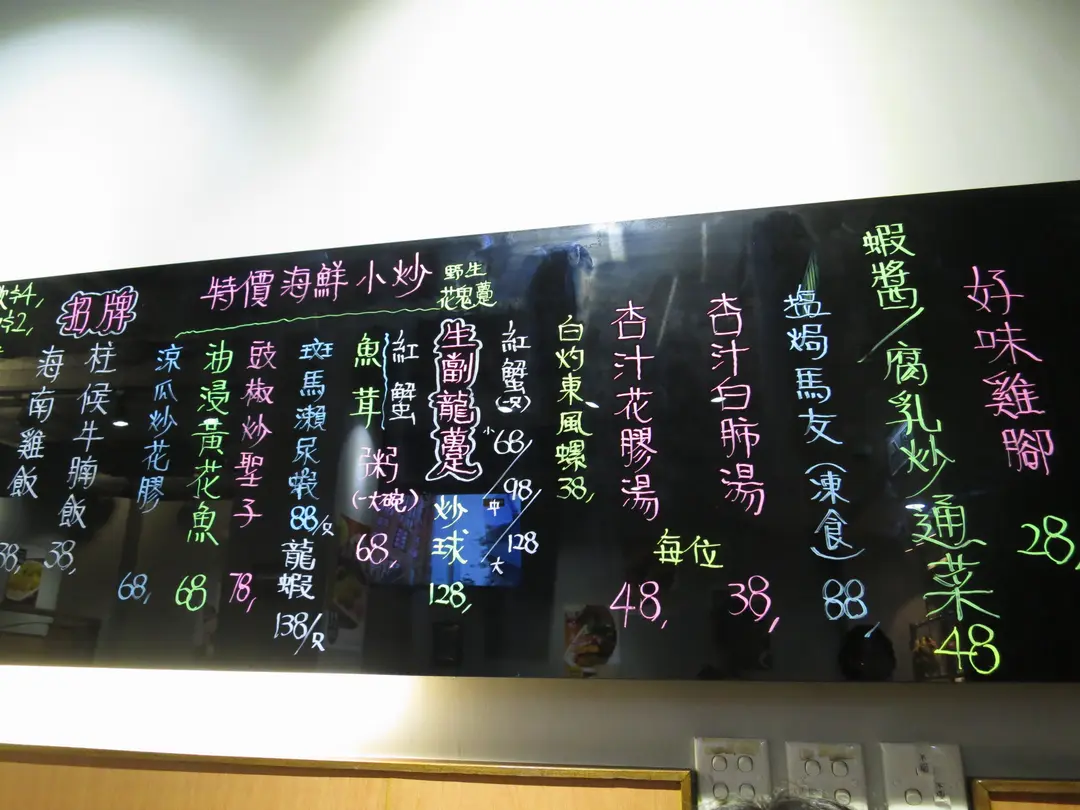 好味雞腳 28,
蝦醬/腐乳炒通菜 48
塩焗馬友(凍食) 88,
杏汁白肺湯 38,
每位
杏汁花膠湯 48,
白灼東風螺 38,
特價海鮮小炒
野生
花鬼躉
紅蟹(又) 小68/中98/大128
生劏龍躉炒球 128,
紅蟹
魚茸粥(一大碗) 68,
斑馬瀨尿蝦 88/又
龍蝦 138/又
豉椒炒聖子 78,
油浸黃花魚 68
涼瓜炒花膠 68,
招牌
柱候牛腩飯 38,
海南雞飯 38,